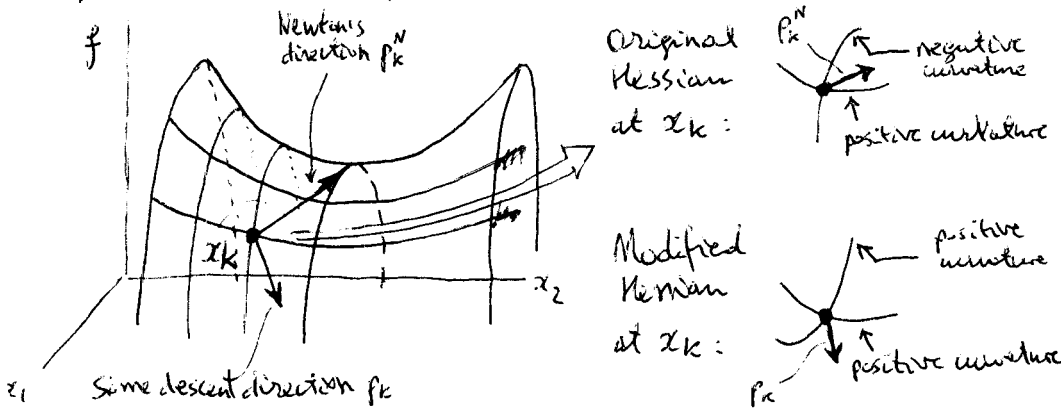 f
Newton's
direction p_k^N
x_k
x_2
x_1
some descent direction p_k
Original
Hessian
at x_k:
p_k^N
negative
curvature
positive curvature
Modified
Hessian
at x_k:
positive
curvature
positive curvature
p_k